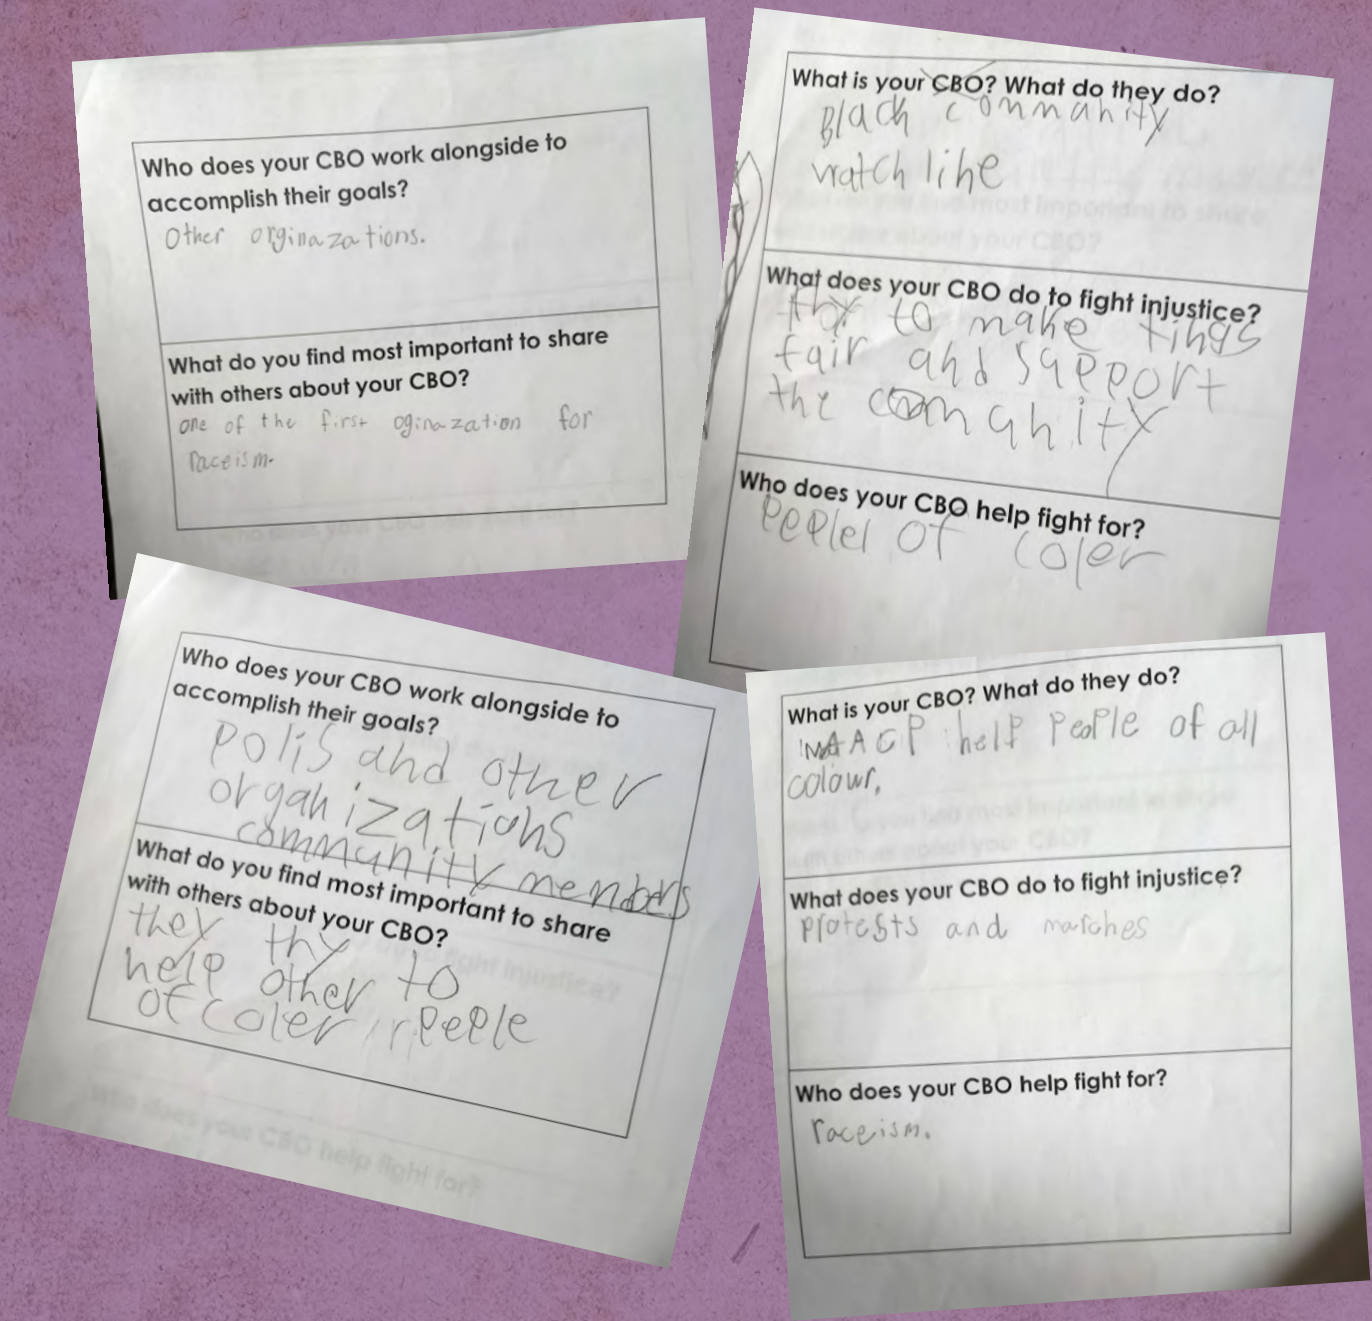 Who does your CBO work alongside to
accomplish their goals?
Other orginazations.
What do you find most important to share
with others about your CBO?
one of the first oginazation for
raceism.
What is your CBO? What do they do?
Black commanity
watch line
What does your CBO do to fight injustice?
thy to make tings
fair and sapport
the comanity
Who does your CBO help fight for?
Peeplel of coler
Who does your CBO work alongside to
accomplish their goals?
polis and other
organizations
community members
What do you find most important to share
with others about your CBO?
they thy
help other to
of coler peeple
What is your CBO? What do they do?
NAACP help people of all
colour.
What does your CBO do to fight injustice?
protests and marches
Who does your CBO help fight for?
raceism.